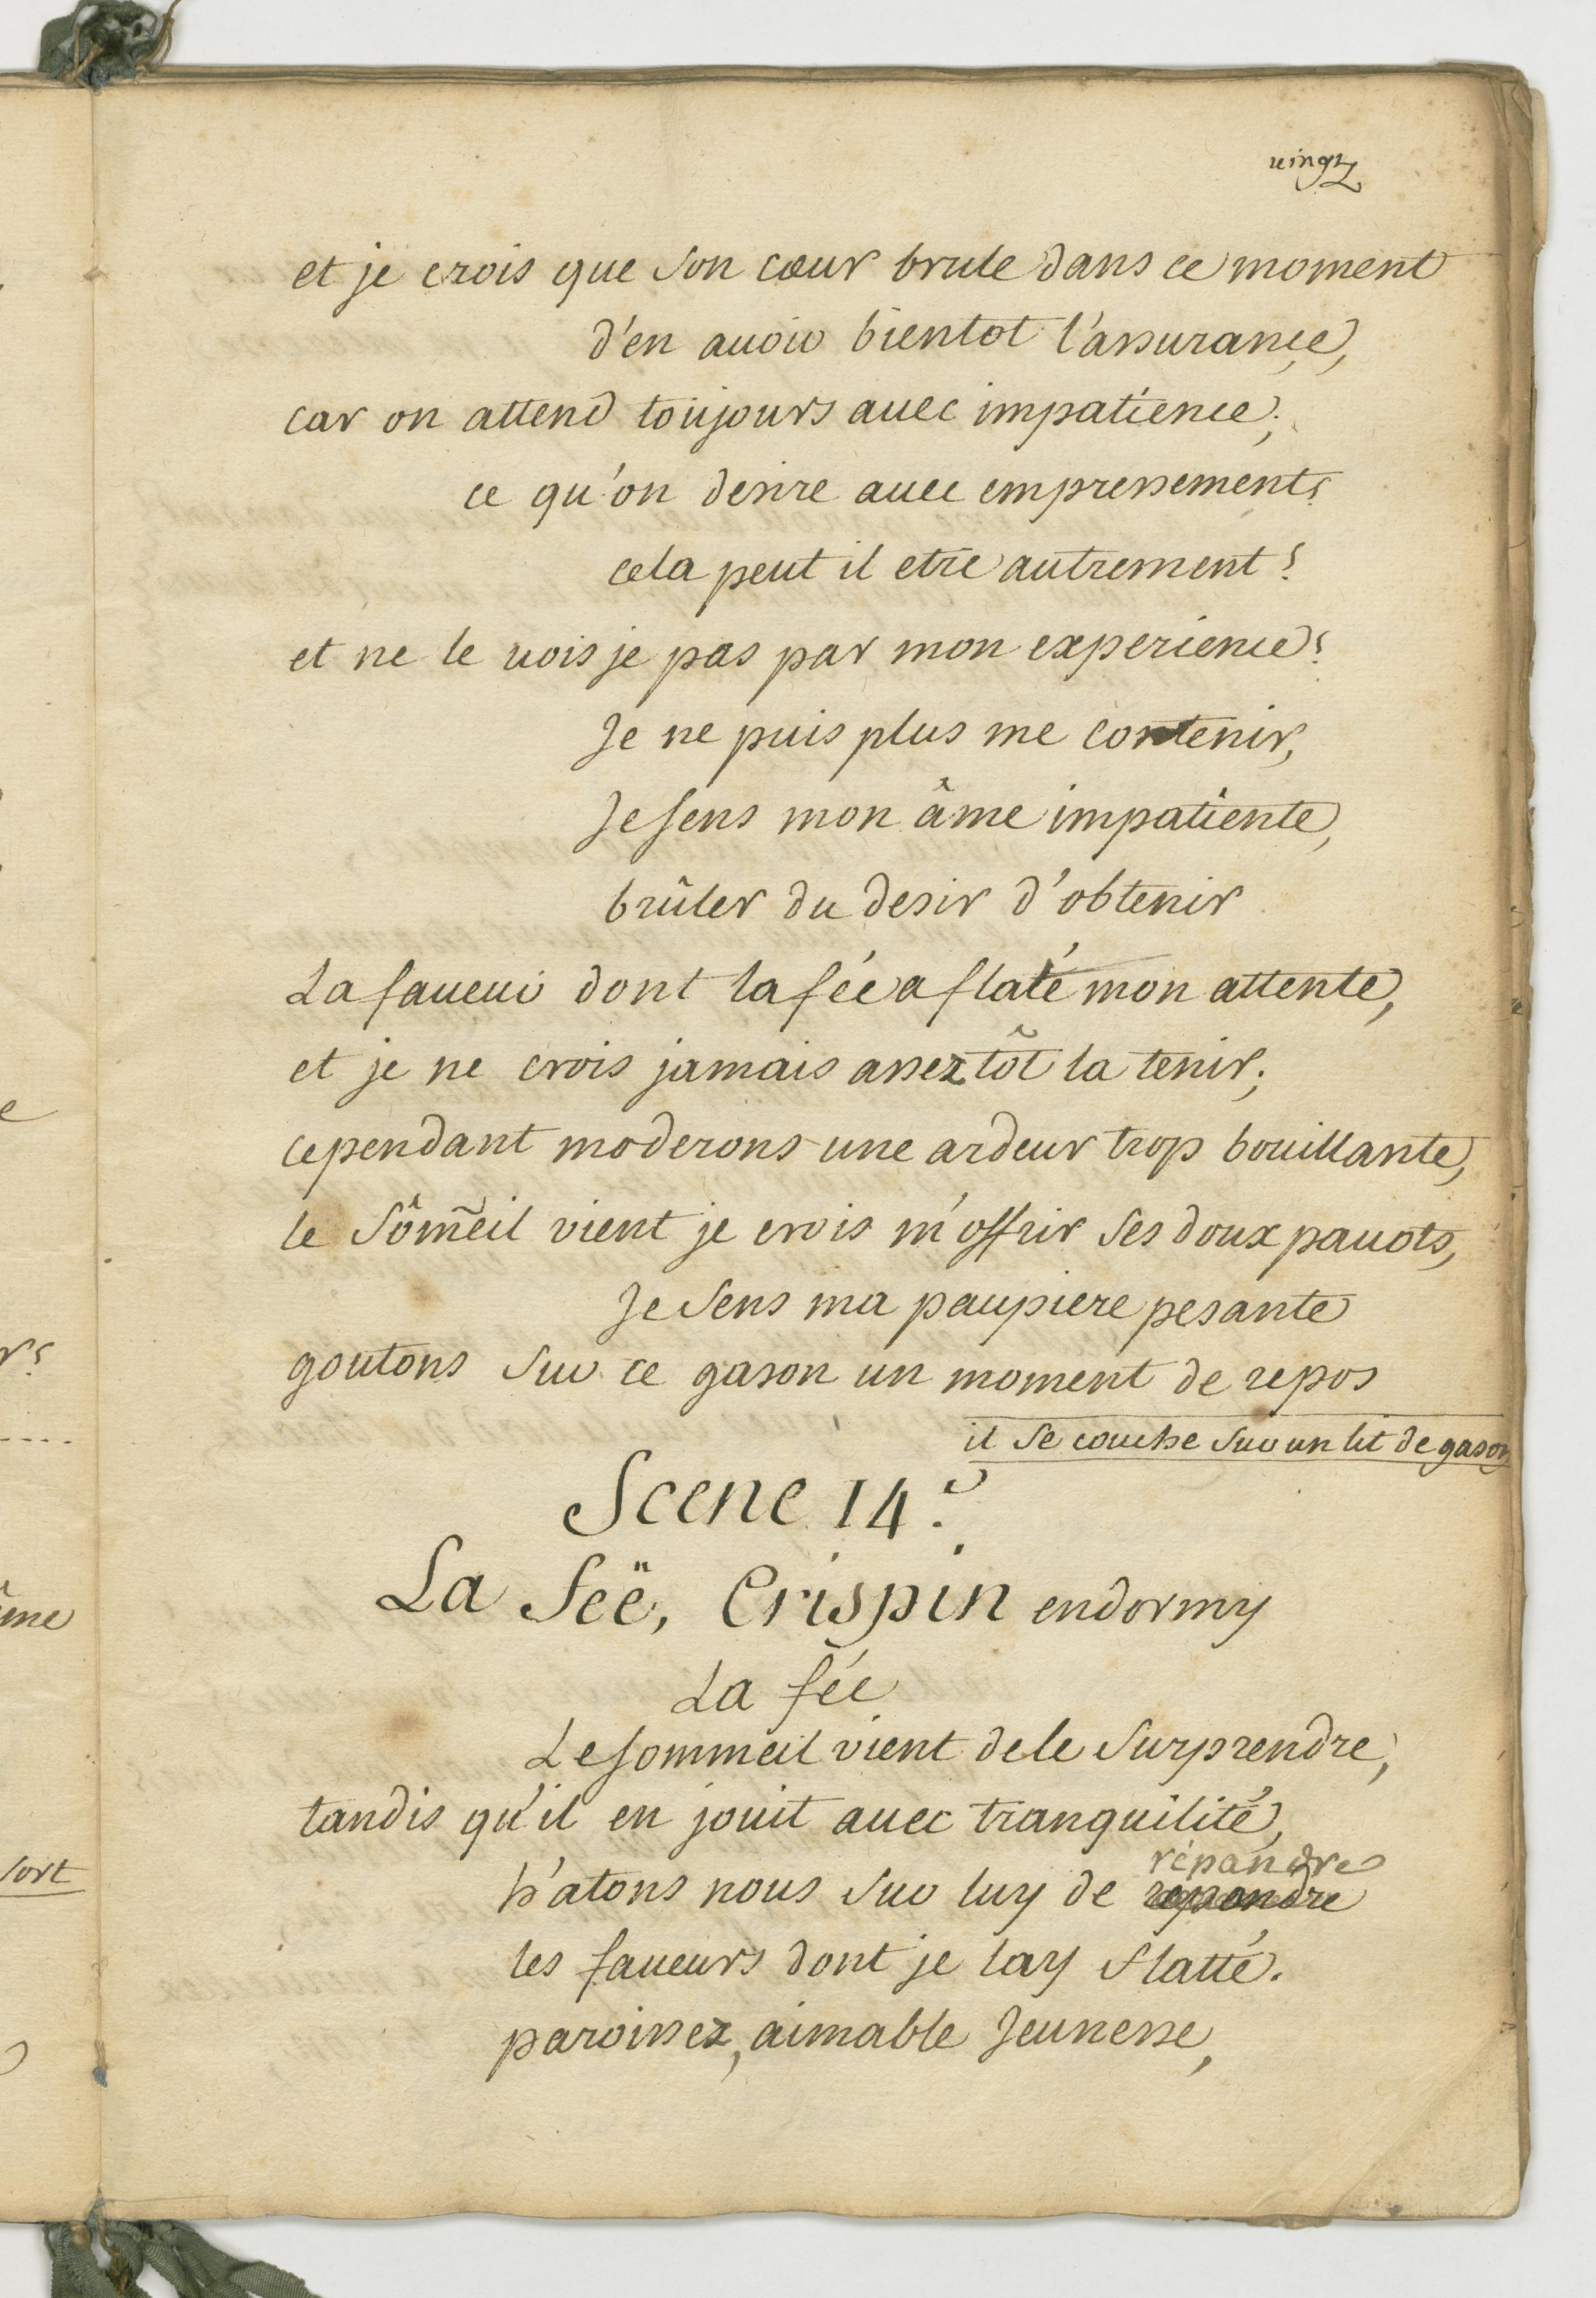 vingt
et je crois que son cœur brule dans ce moment
d'en auoir bientot l'assurance,
car on attend toujours auec impatience;
ce qu'on desire auec empressement;
cela peut il etre autrement?
et ne le uois je pas par mon experience?
Je ne puis plus me contenir,
Je sens mon âme impatiente,
brûler du desir d'obtenir
La faueur dont la fée a flaté mon attente,
et je ne crois jamais assez tôt la tenir;
cependant moderons une ardeur trop bouillante,
le sômeil vient je crois m'offrir ses doux pauots,
Je sens ma paupiere pesante
goutons sur ce gason un moment de repos
il se couche sur un lit de gason
Scene 14.e
La feë, Crispin endormy
La fée
Le sommeil vient de le surprendre,
tandis qu'il en jouit auec tranquilité,
répandre
h'atons nous sur luy de repondre
les faueurs dont je lay flatté.
paroissez, aimable Jeunesse,
e
r?
....
âme
sort